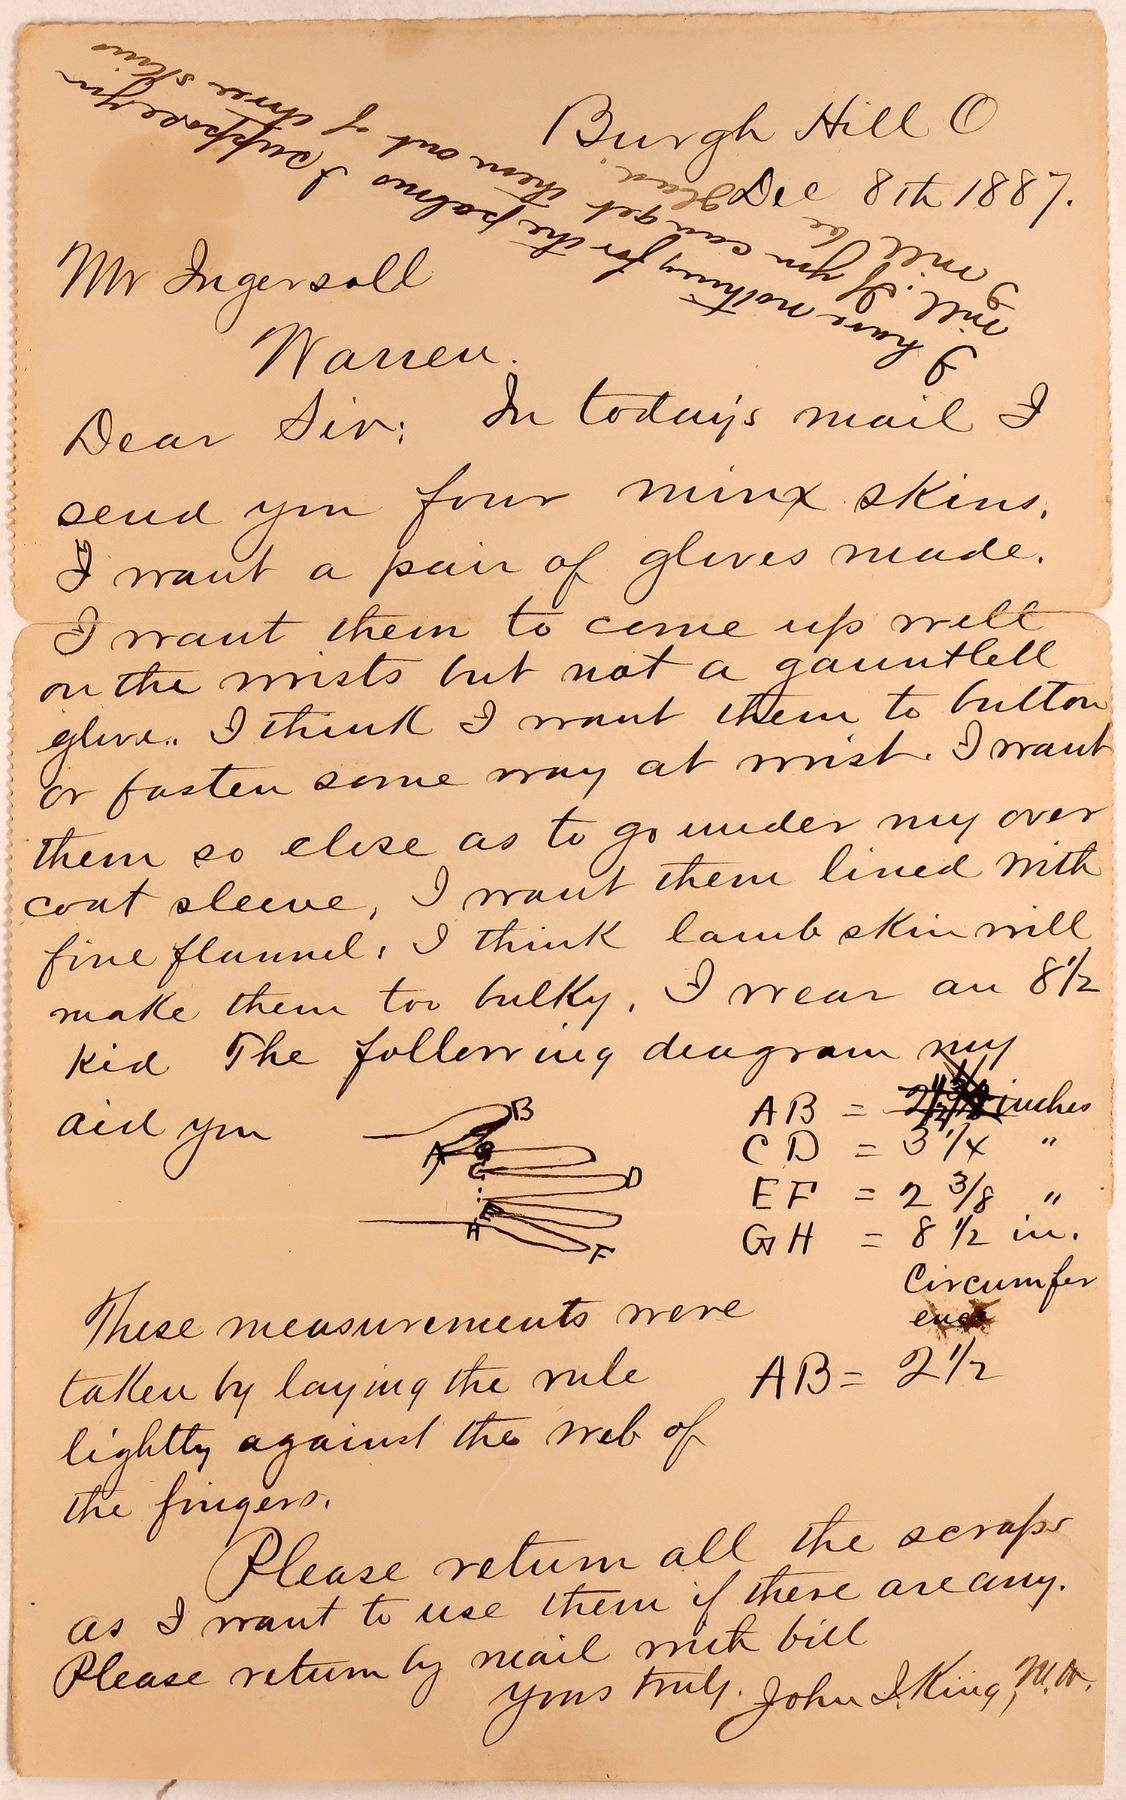 Burgh Hill O
Dec 8th 1887.
Mr Ingersoll
Warren.
Dear Sir; In today's mail I
send you four minx skins.
I want a pair of gloves made.
I want them to come up well
on the wrists but not a gauntlell
glove.. I think I want them to button
or fasten some way at wrist. I want
them so close as to go under my over
coat sleeve, I want them lined with
fine flannel. I think lamb skin will
make them too bulky. I wear an 8 1/2
kid The following diagram my
aid you
B
A
G
C
D
E
H
F
AB = inches
CD = 3 1/4 "
EF = 2 3/8 "
GH = 8 1/2 in.
Circumfer
ence
AB = 2 1/2
These measurements were
taken by laying the rule
lightly against the web of
the fingers.
Please return all the scraps
as I want to use them if there are any.
Please return by mail with bill
yours truly. John I. King, M.D.
I have nothing for the palms I suppose you
will. If you can get them out of three skins
I will be glad.